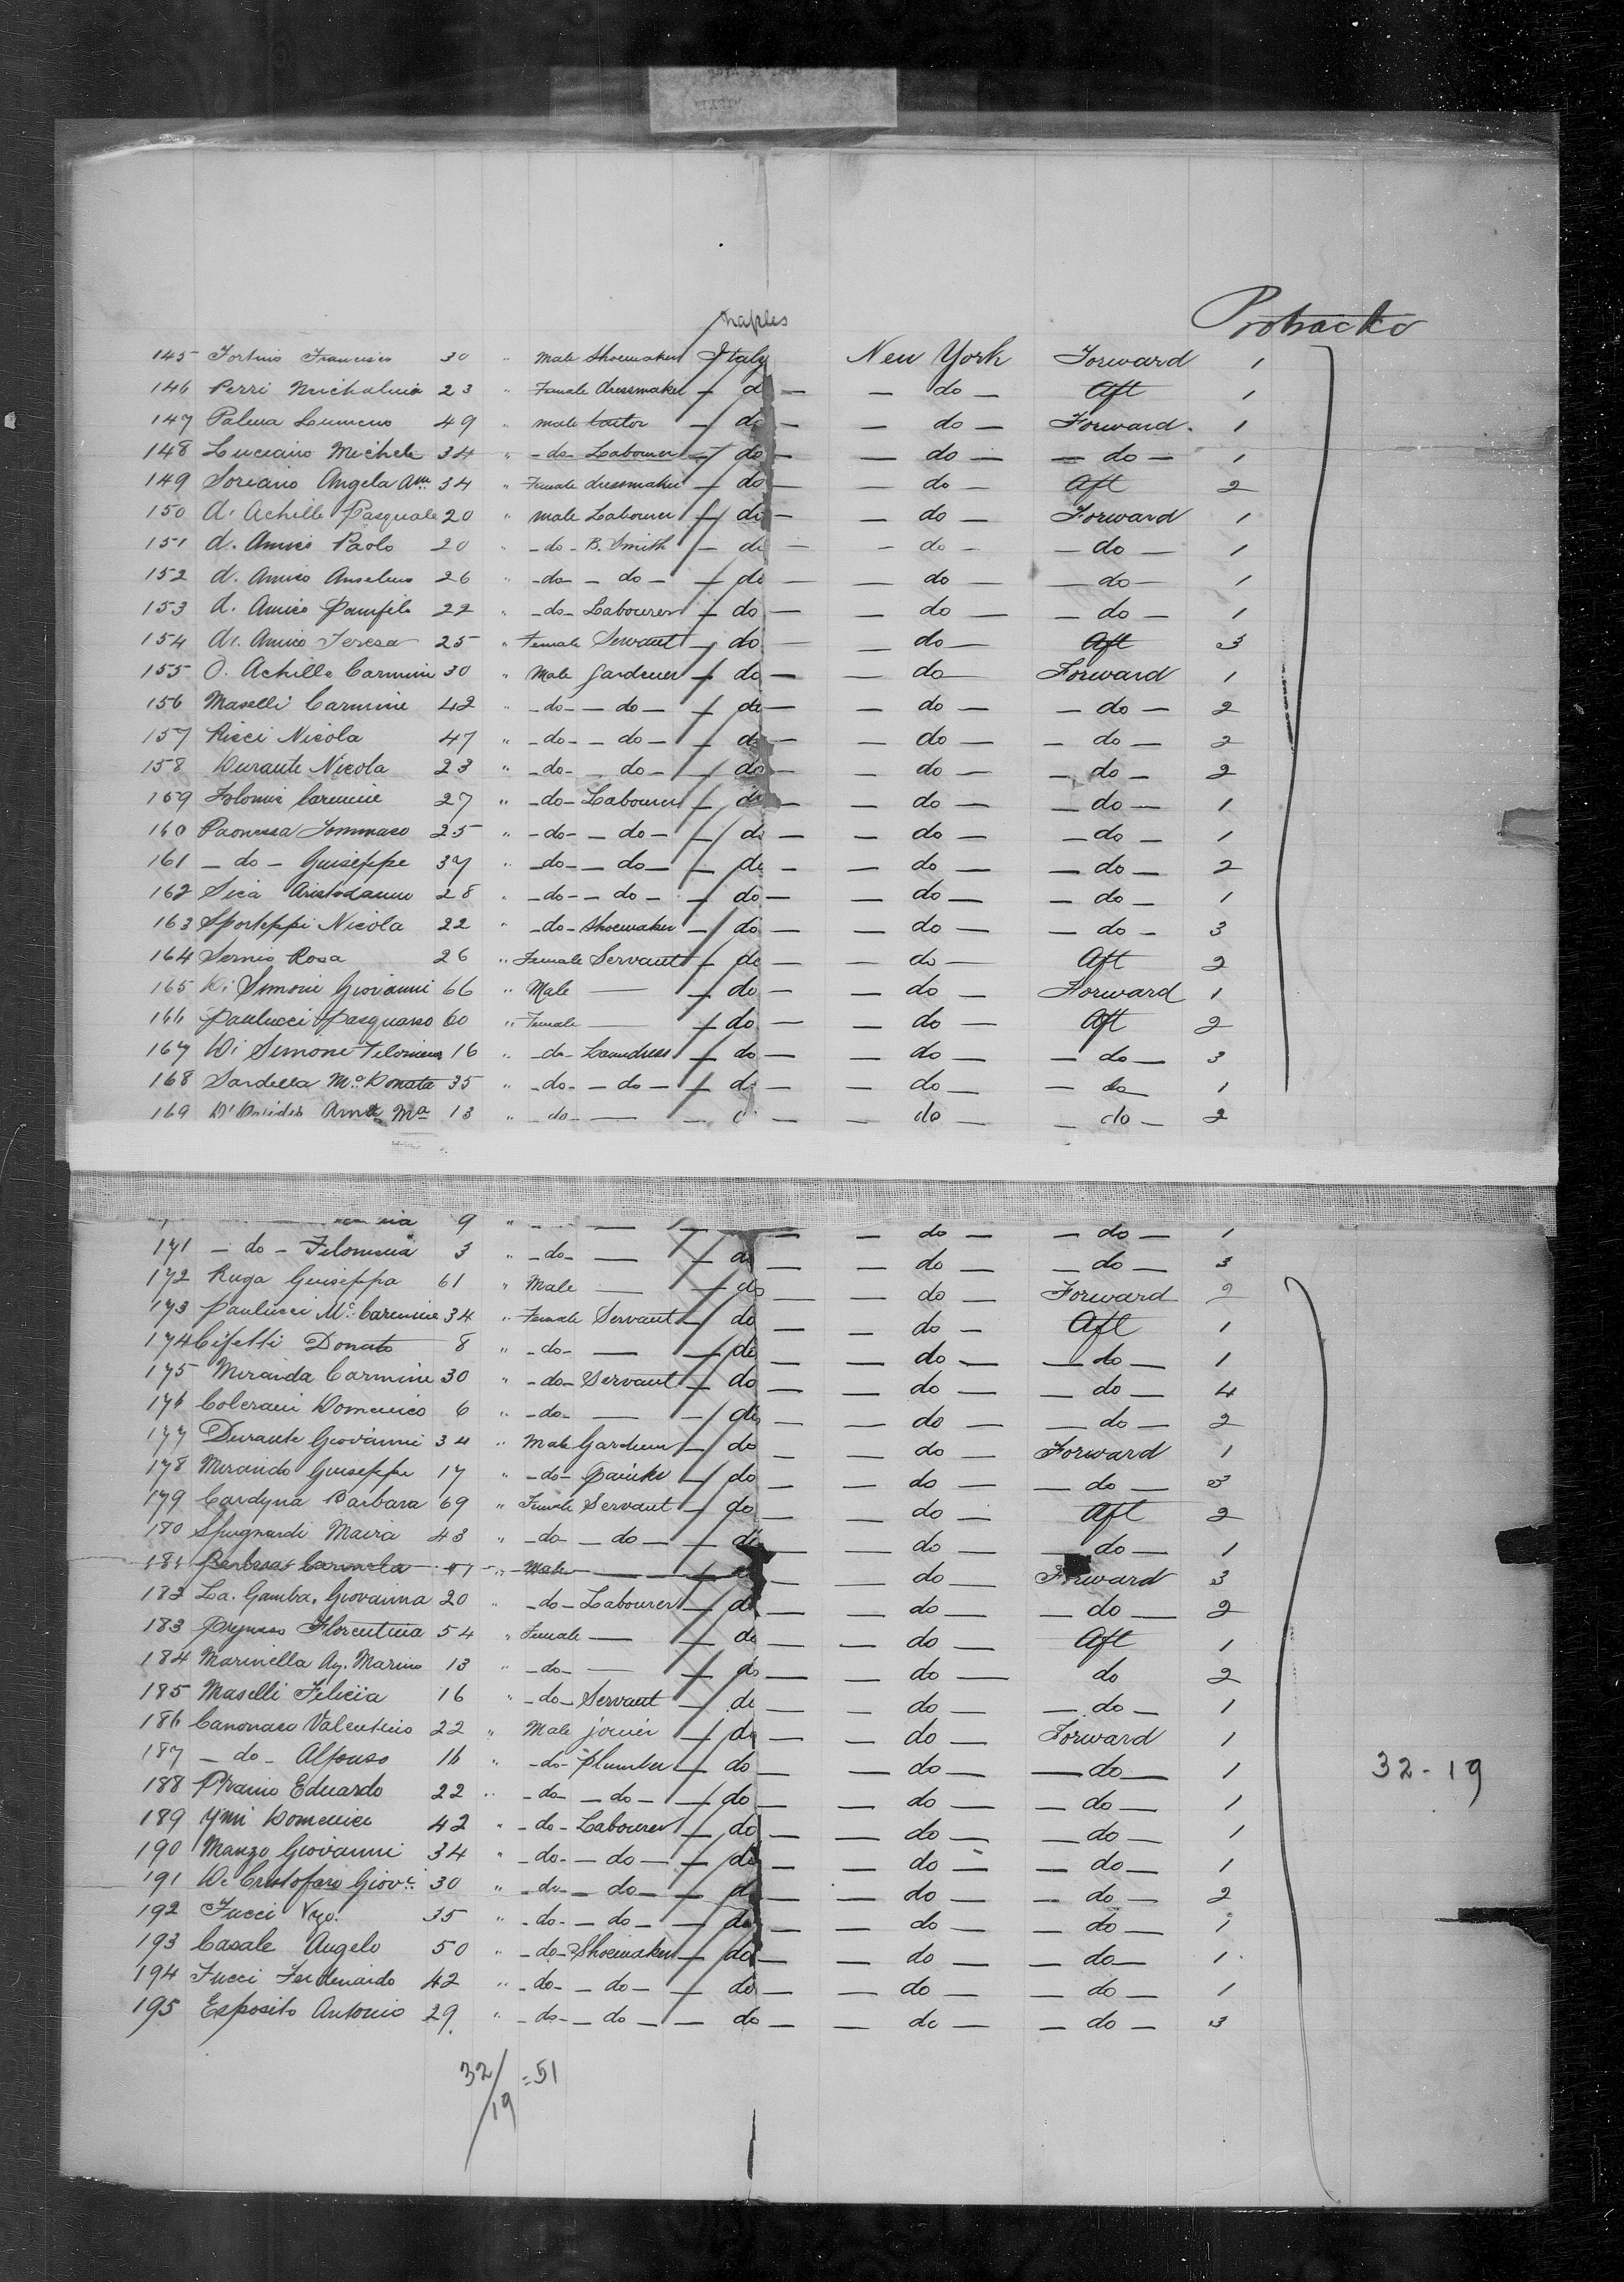 Naples
Protracto
145 Fortino Francisco 30 " Male Shoemaker Italy New York Forward 1
146 Perri Michalina 23 " Female dressmaker - do - - do - Aft 1
147 Palma 49 " Male - do - - do - Forward 1
148 Luciano Michele 34 " - do - Labourer - do - - do - - do - 1
149 Soriano Angela Ama 34 " Female dressmaker - do - - do - Aft 2
150 d. Achille Pasquale 20 " Male Labourer - do - - do - Forward 1
151 d. Amico Paolo 20 " - do - B. Smith - do - - do - - do - 1
152 d. Amico Anselmo 26 " - do - - do - - do - - do - - do - 1
153 d. Amico Pamfilo 22 " - do - Labourer - do - - do - - do - 1
154 di. Amico Teresa 25 " Female Servant - do - - do - Aft 3
155 O. Achille Carmine 30 " Male Gardener - do - - do - Forward 1
156 Maselli Carmine 42 " - do - - do - - do - - do - - do - 2
157 Ricci Nicola 47 " - do - - do - - do - - do - - do - 2
158 Durante Nicola 23 " - do - do - - do - - do - - do - 2
159 Carmine 27 " - do - Labourer - do - - do - - do - 1
160 Paonessa Tommaso 25 " - do - - do - - do - - do - - do - 1
161 - do - Guiseppe 37 " - do - - do - - do - - do - - do - 2
162 Sica 28 " - do - - do - - do - - do - - do - 1
163 Nicola 22 " - do - Shoemaker - do - - do - - do - 3
164 Rosa 26 " Female Servant - do - - do - Aft 2
165 Di Simoni Giovanni 66 " Male — - do - - do - Forward 1
166 Paulucci 60 " Female — - do - - do - Aft 2
167 Di Simone Filomena 16 " - do - Laundress - do - - do - - do - 3
168 Sardella Ma. Donata 35 " - do - - do - - do - - do - - do - 1
169 Ma 13 " - do - — - do - do - - do - 2
9 " - — - - do - - do - 1
171 - do - Filomena 3 " - do - — - do - - do - - do - 3
172 Ruga Guiseppa 61 " Male — - do - - do - Forward 2
173 Paulucci Ma. Carmine 34 " Female Servant - do - - do - Aft 1
174 Cifelli Donato 8 " - do - — - do - - do - - do - 1
175 Miranda Carmine 30 " - do - Servant - do - - do - - do - 4
176 Domenico 6 " - do - — - do - - do - - do - 2
177 Durante Giovanni 34 " Male Gardener - do - - do - Forward 1
178 Mirando Guiseppe 17 " - do - Painter - do - - do - - do - 3
179 Barbara 69 " Female Servant - do - - do - Aft 2
180 Spugnardi Maira 43 " - do - - do - - do - - do - - do - 1
181 Carmela 47 " Male — - do - - do - Forward 3
182 La. Gamba. Giovanna 20 " - do - Labourer - do - - do - - do - 2
183 Florentina 54 " Female — - do - - do - Aft 1
184 Marinella Ag. Marino 13 " - do - — - do - - do - do 2
185 Maselli Felicia 16 " - do - Servant - do - - do - - do - 1
186 Canonaco Valentino 22 " Male joiner - do - - do - Forward 1
187 - do - Alfonso 16 " - do - Plumber - do - - do - - do - 1
32 - 19
188 Eduardo 22 " - do - - do - - do - - do - - do - 1
189 Domenico 42 " - do - Labourer - do - - do - - do - 1
190 Manzo Giovanni 34 " - do - - do - - do - - do - - do - 1
191 De Cristofaro Giovi. 30 " - do - - do - - do - - do - - do - 2
192 Fucci Vzo. 35 " - do - - do - - do - - do - - do - 1
193 Casale Angelo 50 " - do - Shoemaker - do - - do - - do - 1
194 Fucci Ferdenardo 42 " - do - - do - - do - - do - - do - 1
195 Esposito Antonio 29 " - do - - do - - do - - do - - do - 3
32/19 = 51